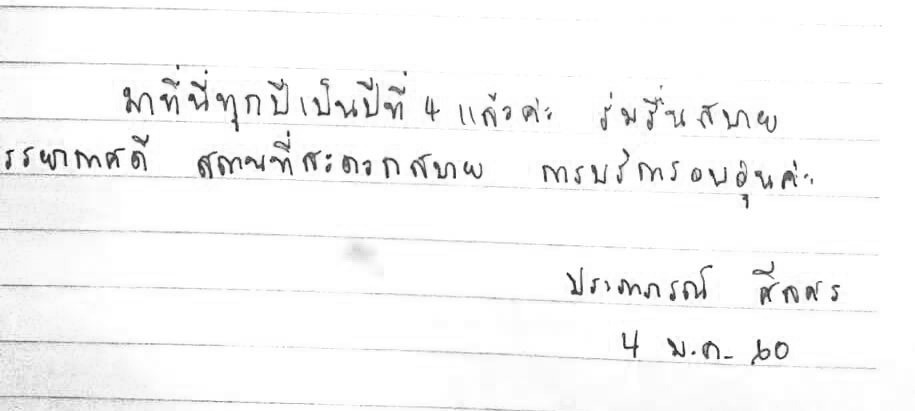 มาที่นี่ทุกปี เป็นปีที่ 4 แล้วค่ะ ร่มรื่นสบาย
รรยากาศดี สถานที่สะดวกสบาย การบริการอบอุ่นค่ะ
ประภาภรณ์
4 ม.ค. 60